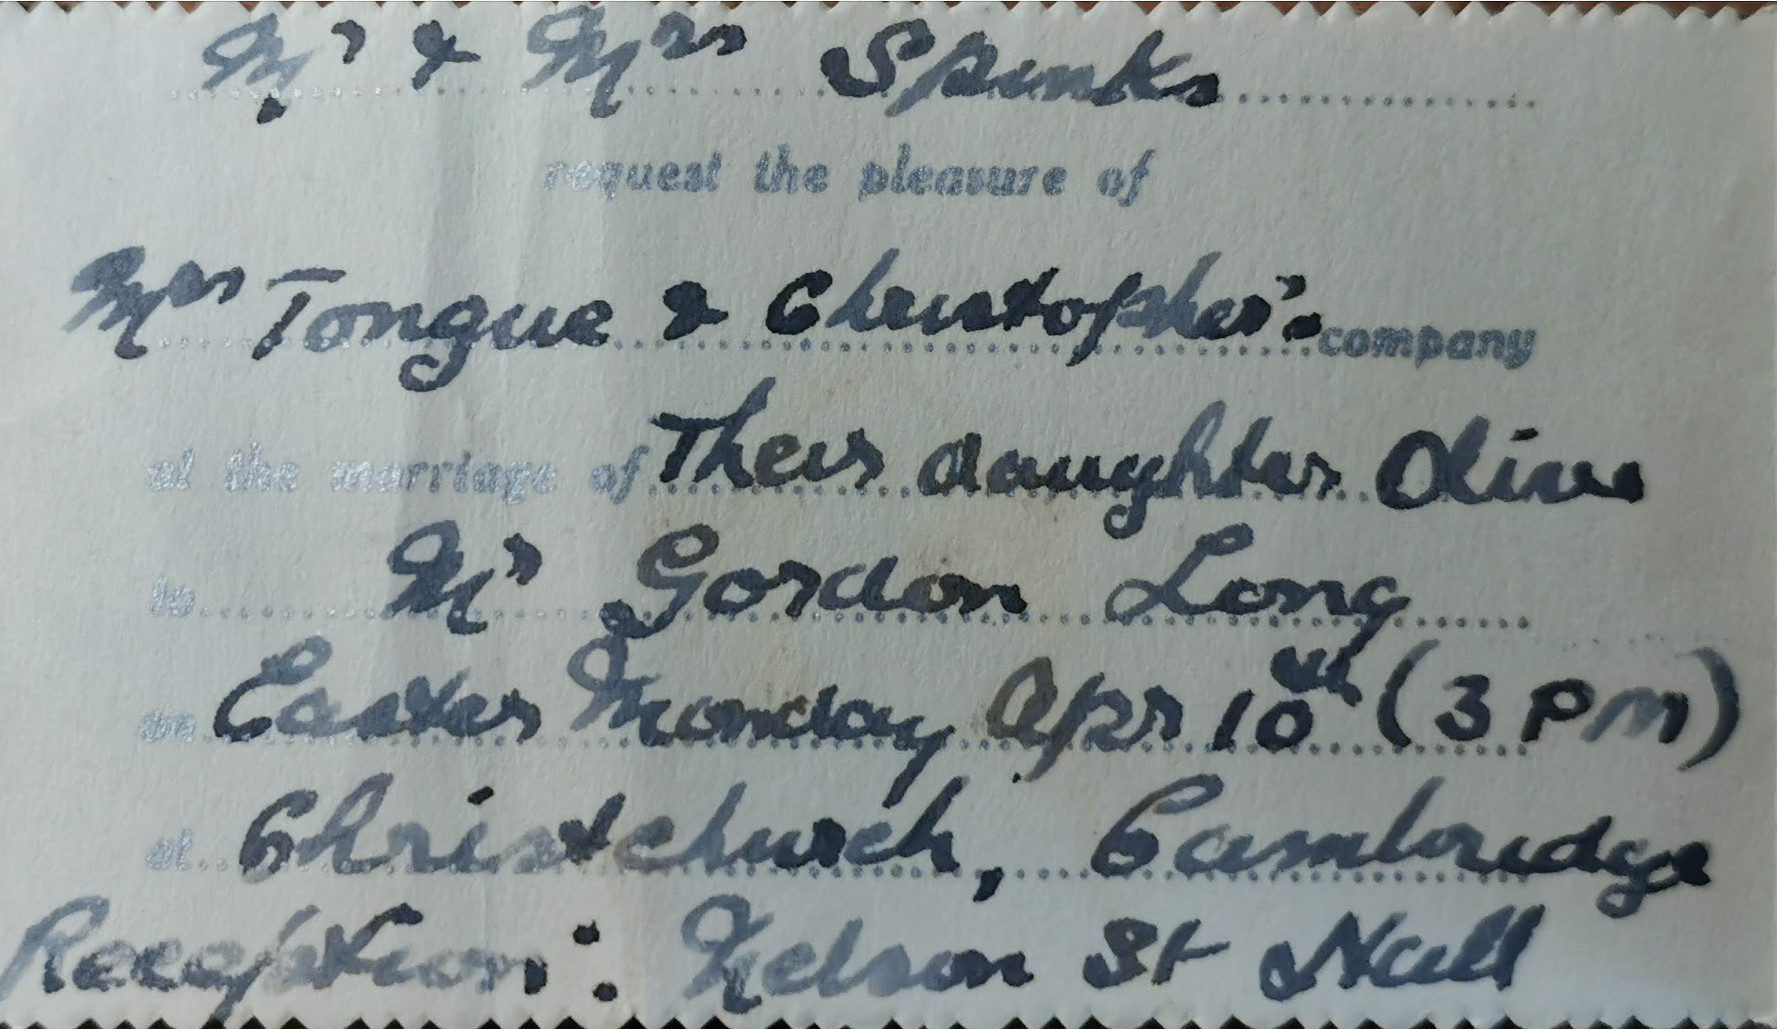 Mr & Mrs Spinks
request the pleasure of
Mrs Tongue & Christopher's company
at the marriage of Their daughter Olive
to Mr Gordon Long
on Easter Monday Apr 10th (3 PM)
at Christchurch, Cambridge
Reception: Nelson St Hall